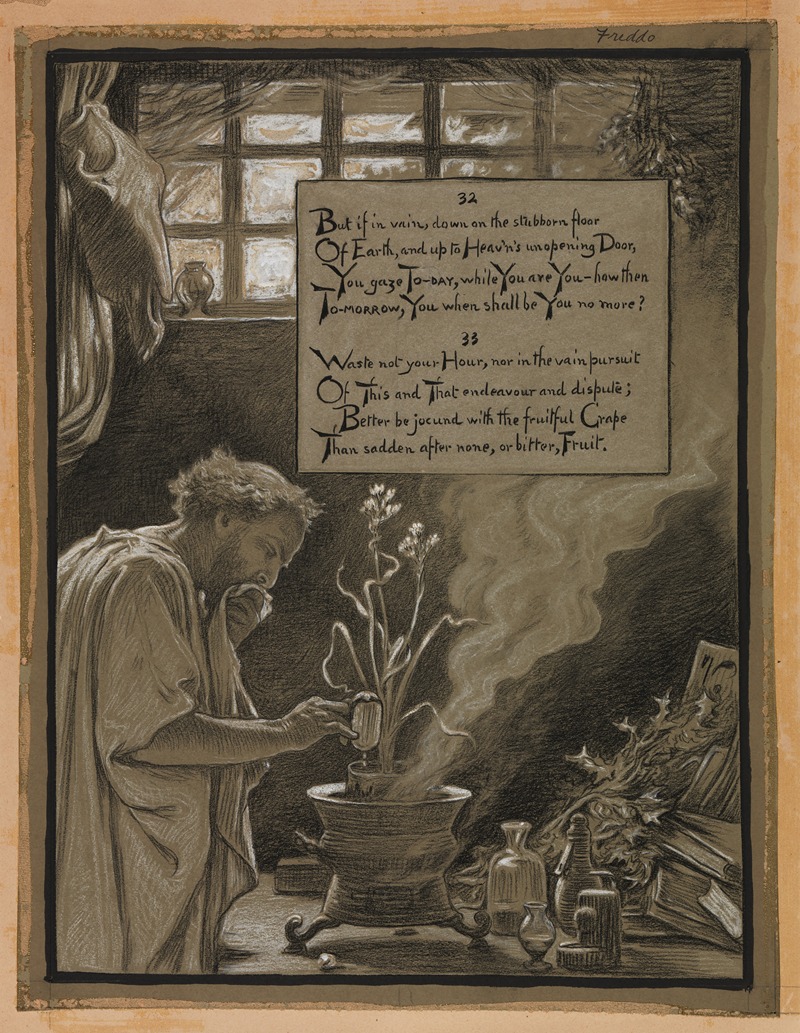 Freddo
32
But if in vain, down on the stubborn floor
Of Earth, and up to Heav'n's unopening Door,
You gaze To-DAY, while You are You—how then
To-MORROW, You when shall be You no more?
33
Waste not your Hour, nor in the vain pursuit
Of This and That endeavour and dispute;
Better be jocund with the fruitful Grape
Than sadden after none, or bitter, Fruit.